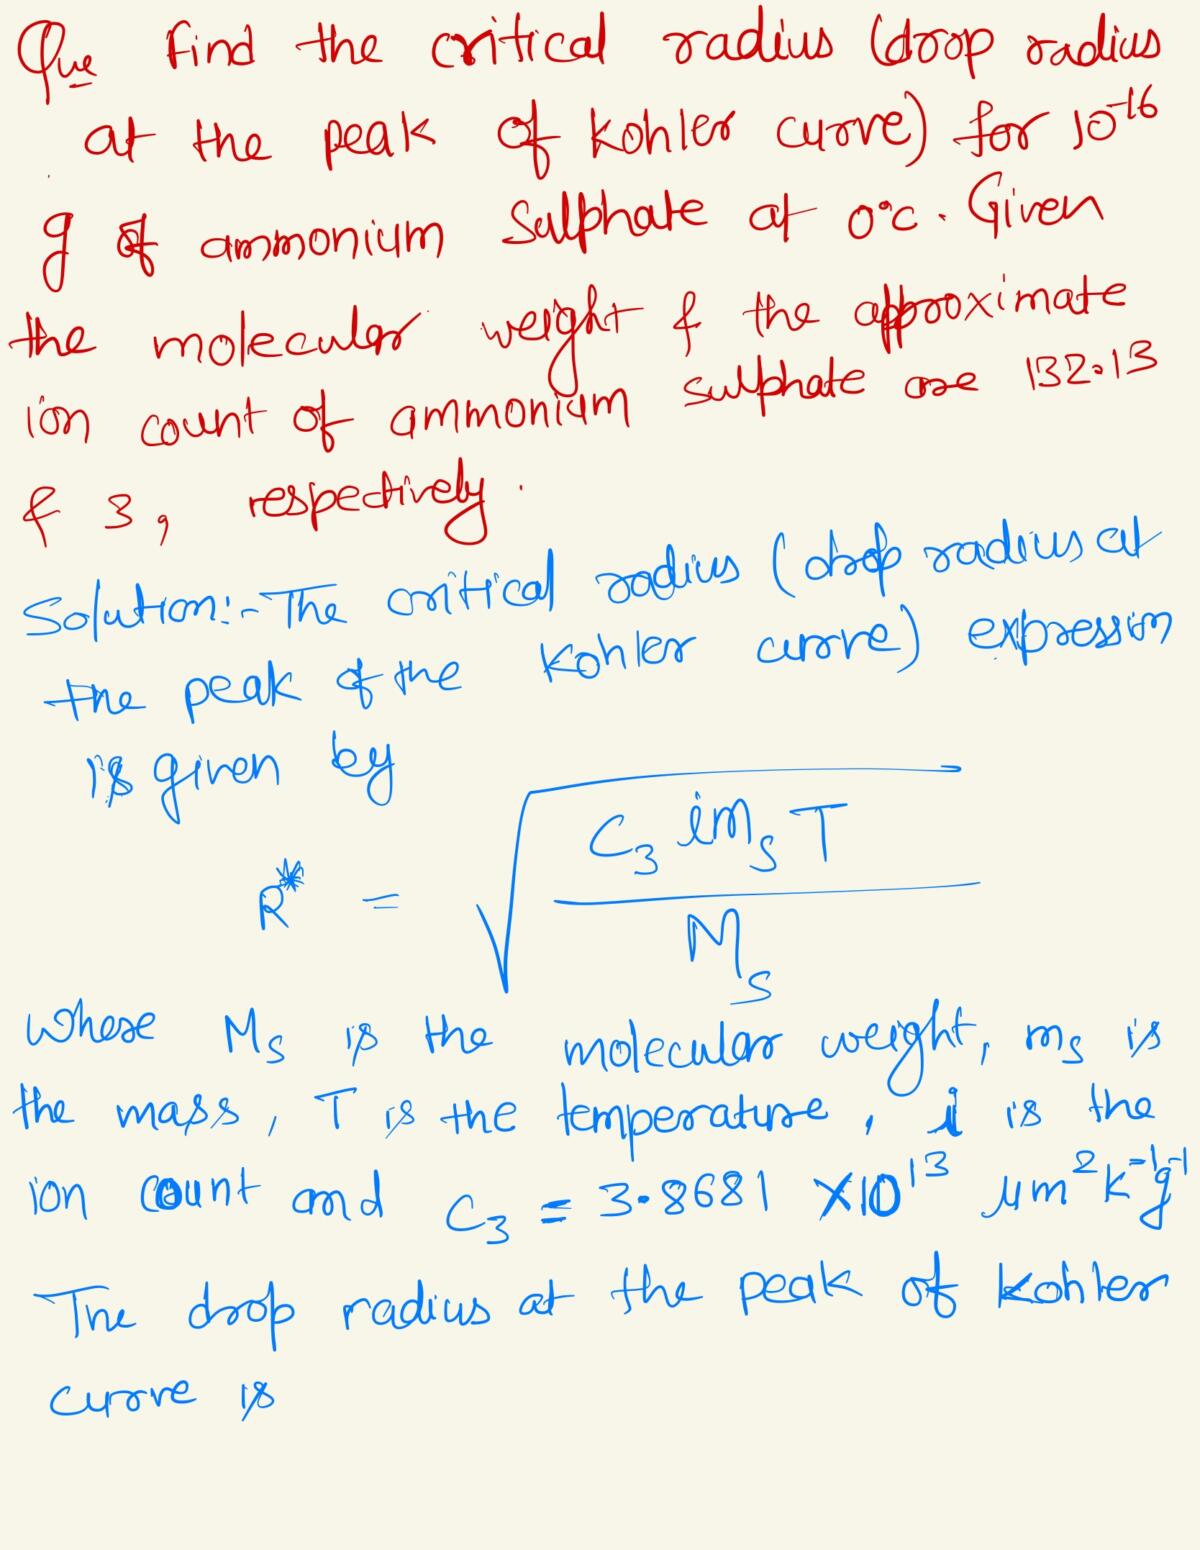 Que Find the critical radius (drop radius
at the peak of kohler curve) for 10^-16
g of ammonium Sulphate at 0°c. Given
the molecular weight & the approximate
ion count of ammonium sulphate are 132.13
& 3, respectively.
Solution:- The critical radius (drop radius at
the peak of the kohler curve) expression
is given by
R* = √(C₃ i m_s T / M_s)
where M_s is the molecular weight, m_s is
the mass, T is the temperature, i is the
ion count and C₃ = 3.8681 ×10^13 μm² k^-1 g^-1
The drop radius at the peak of kohler
curve is